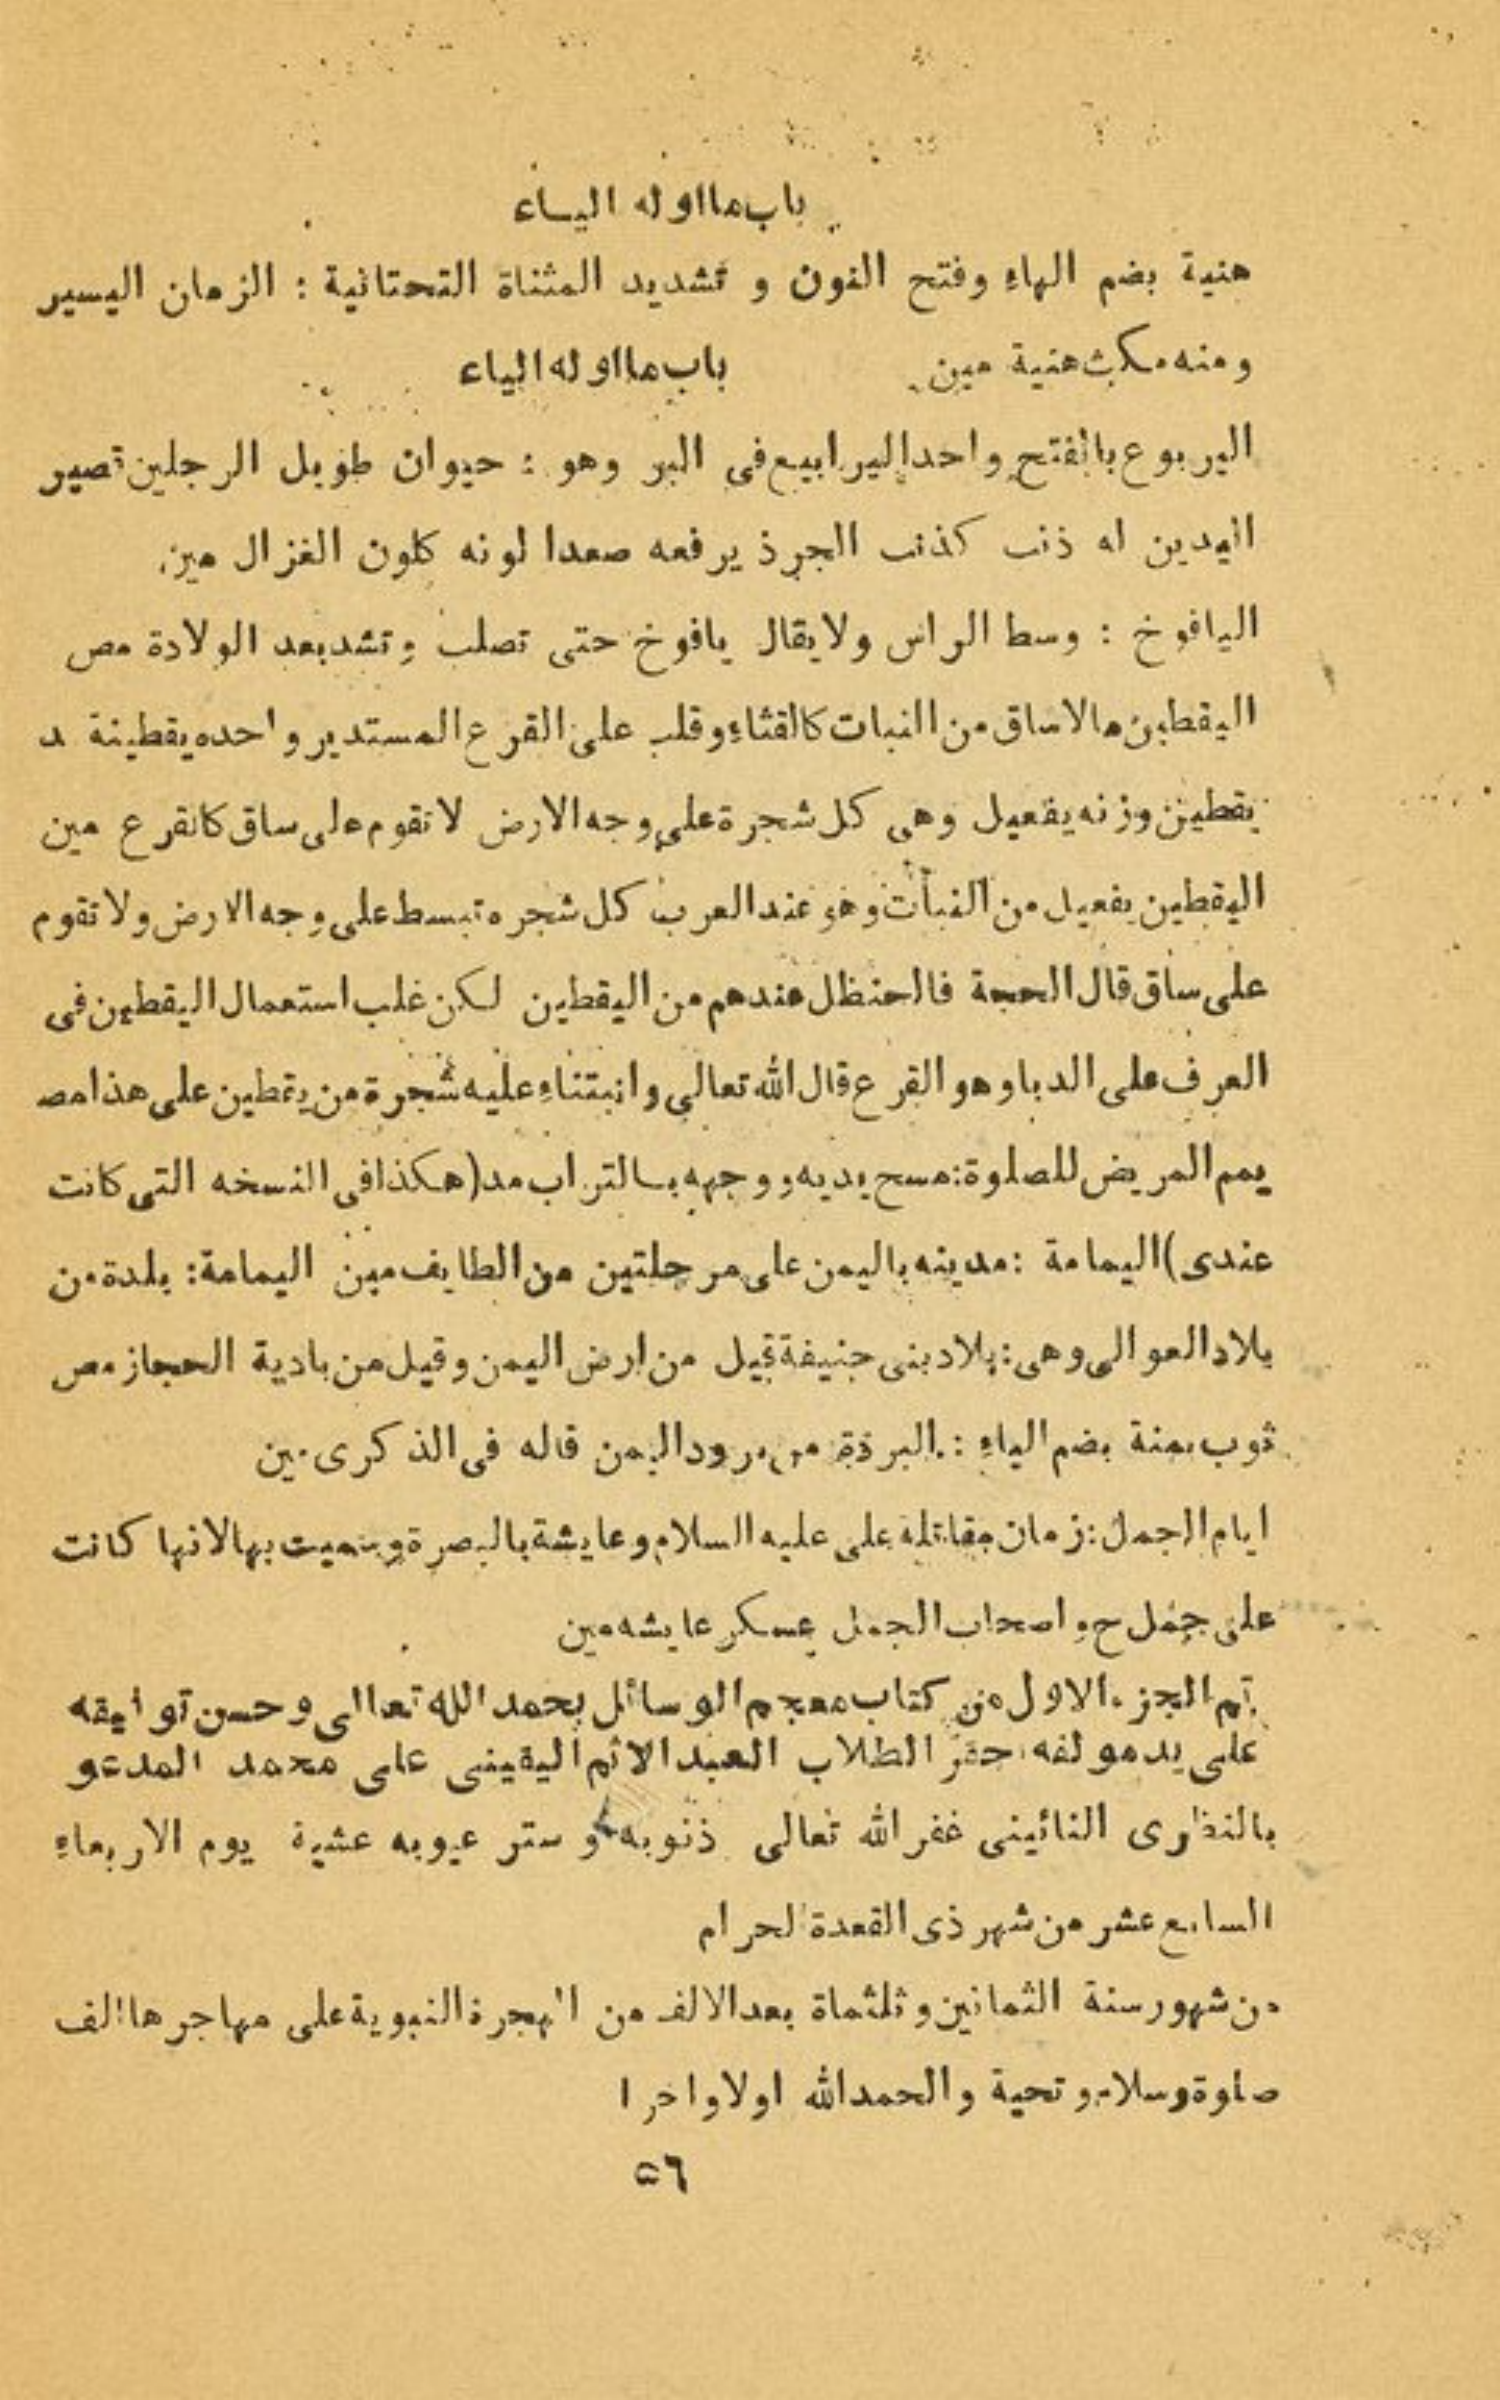 باب ما اوله الياء
هنية بضم الهاء وفتح النون و تشديد المثناة التحتانية : الزمان اليسير
ومنه مكث هنية مين باب ما اوله الياء
اليربوع بالفتح واحد اليرابيع فى البر وهو : حيوان طويل الرجلين قصير
اليدين له ذنب كذنب الجرذ يرفعه صعدا لونه كلون الغزال مين
اليافوخ : وسط الراس ولا يقال يافوخ حتى تصلب و تشد بعد الولادة مص
اليقطين مالا ساق من النبات كالقثاء وقلب على القرع المستدير واحده يقطينة مد
يقطين وزنه يفعيل وهى كل شجرة على وجه الارض لا تقوم على ساق كالقرع مين
اليقطين يفعيل من النبات وهو عند العرب كل شجره تبسط على وجه الارض ولا تقوم
على ساق قال الحجة فالحنظل عندهم من اليقطين لكن غلب استعمال اليقطين فى
العرف على الدبا وهو القرع قال الله تعالى وانبتناء عليه شجرة من يقطين على هذا مص
يمم المريض للصلوة : مسح يديه ووجهه بالتراب مد (هكذا فى النسخه التى كانت
عندى) اليمامة : مدينه باليمن على مرحلتين من الطايف مين اليمامة : بلدة من
بلاد العوالى وهى : بلاد بنى حنيفة قيل من ارض اليمن وقيل من بادية الحجاز مص
ثوب يمنة بضم الياء : البردة من برود اليمن قاله فى الذكرى مين
ايام الجمل : زمان مقاتلة على عليه السلام وعايشة بالبصرة وسميت بها لانها كانت
على جمل ح واصحاب الجمل عسكر عايشه مين
تم الجزء الاول من كتاب معجم الوسائل بحمد الله تعالى وحسن توفيقه
على يد مولفه احقر الطلاب العبد الاثم اليقينى على محمد المدعو
بالنظارى النائينى غفر الله تعالى ذنوبه و ستر عيوبه عشية يوم الاربعاء
السابع عشر من شهر ذى القعدة الحرام
من شهور سنة الثمانين وثلثماة بعد الالف من الهجرة النبوية على مهاجرها الف
صلوة وسلام و تحية والحمد الله اولا واخرا
٥٦